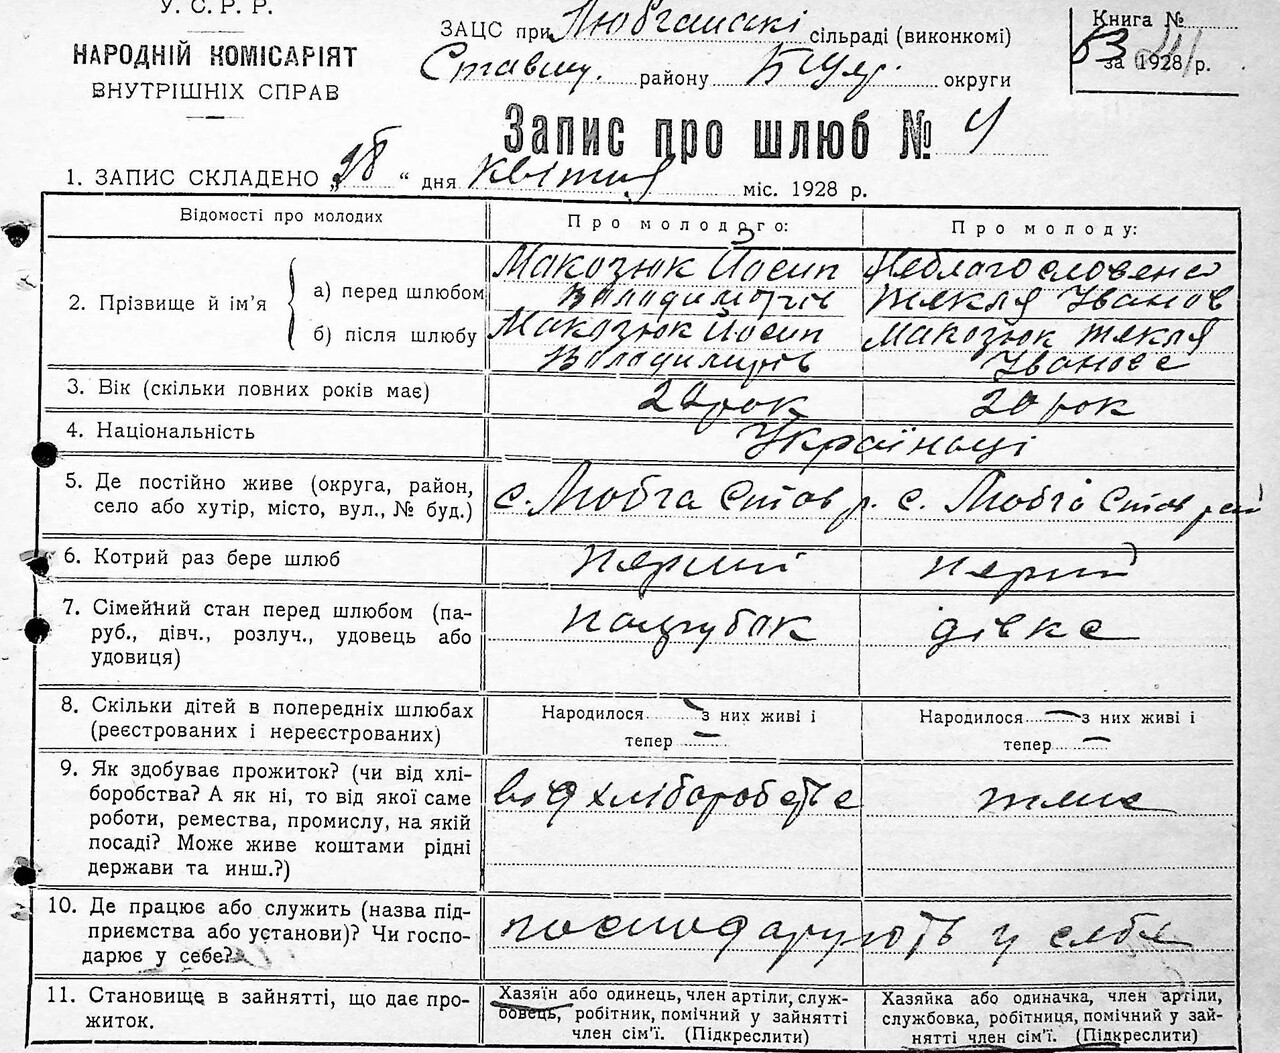 У. С. Р. Р.
НАРОДНІЙ КОМІСАРІЯТ
ВНУТРІШНІХ СПРАВ
ЗАЦС при сільраді (виконкомі)
Ставищ. району округи
Книга №
за 1928 р.
Запис про шлюб №
1. ЗАПИС СКЛАДЕНО „28“ дня квітня міс. 1928 р.
Відомості про молодих
Про молодого:
Про молоду:
2. Прізвище й ім'я
а) перед шлюбом
Макозюк Йосип
Володимирів
Неблагословена
Текля Іванов
б) після шлюбу
Макозюк Йосип
Володимирів
Макозюк Текля
Іванова
3. Вік (скільки повних років має)
рок
20 рок
4. Національність
Українці
5. Де постійно живе (округа, район,
село або хутір, місто, вул., № буд.)
с. Любча Став р.
с. Любча Став рай
6. Котрий раз бере шлюб
перший
перший
7. Сімейний стан перед шлюбом (па-
руб., дівч., розлуч., удовець або
удовиця)
парубок
дівка
8. Скільки дітей в попередніх шлюбах
(реєстрованих і нереєстрованих)
Народилося — з них живі і
тепер —
Народилося — з них живі і
тепер —
9. Як здобуває прожиток? (чи від хлі-
боробства? А як ні, то від якої саме
роботи, ремества, промислу, на якій
посаді? Може живе коштами рідні
держави та инш.?)
від хліборобства
теж
10. Де працює або служить (назва під-
приємства або установи)? Чи госпо-
дарює у себе?
господарують у себе
11. Становище в зайнятті, що дає про-
житок.
Хазяїн або одинець, член артіли, служ-
бовець, робітник, помічний у зайнятті
член сім'ї. (Підкреслити)
Хазяйка або одиначка, член артіли,
службовка, робітниця, помічний у зай-
нятті член сім'ї. (Підкреслити)